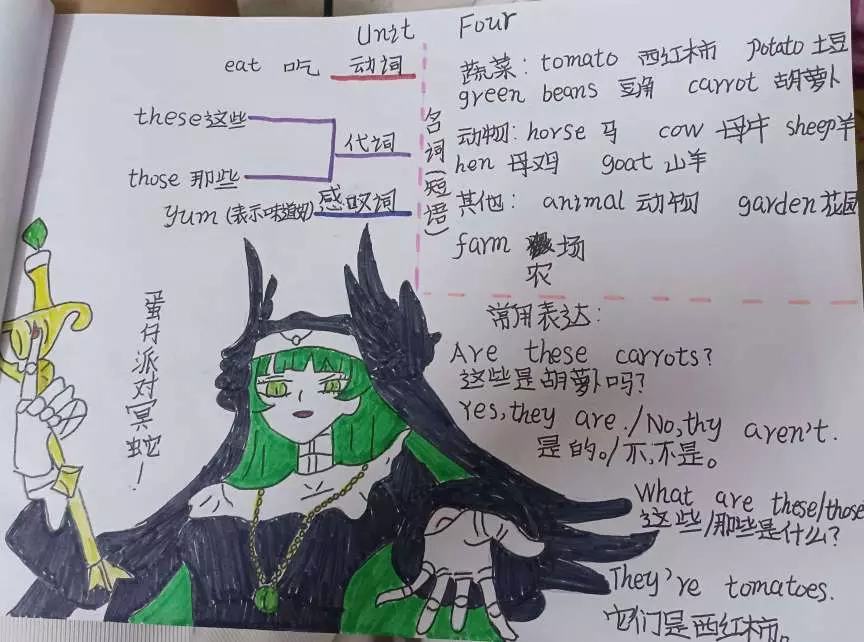 Unit Four
eat 吃 动词
these 这些
代词
those 那些
yum (表示味道好) 感叹词
名词(短语)
蔬菜: tomato 西红柿 potato 土豆
green beans 豆角 carrot 胡萝卜
动物: horse 马 cow 母牛 sheep 羊
hen 母鸡 goat 山羊
其他: animal 动物 garden 花园
farm 场
农
蛋仔派对冥蛇!
常用表达:
Are these carrots?
这些是胡萝卜吗?
Yes, they are./No, thy aren't.
是的。/不,不是。
What are these/those
这些/那些是什么?
They're tomatoes.
它们是西红柿。